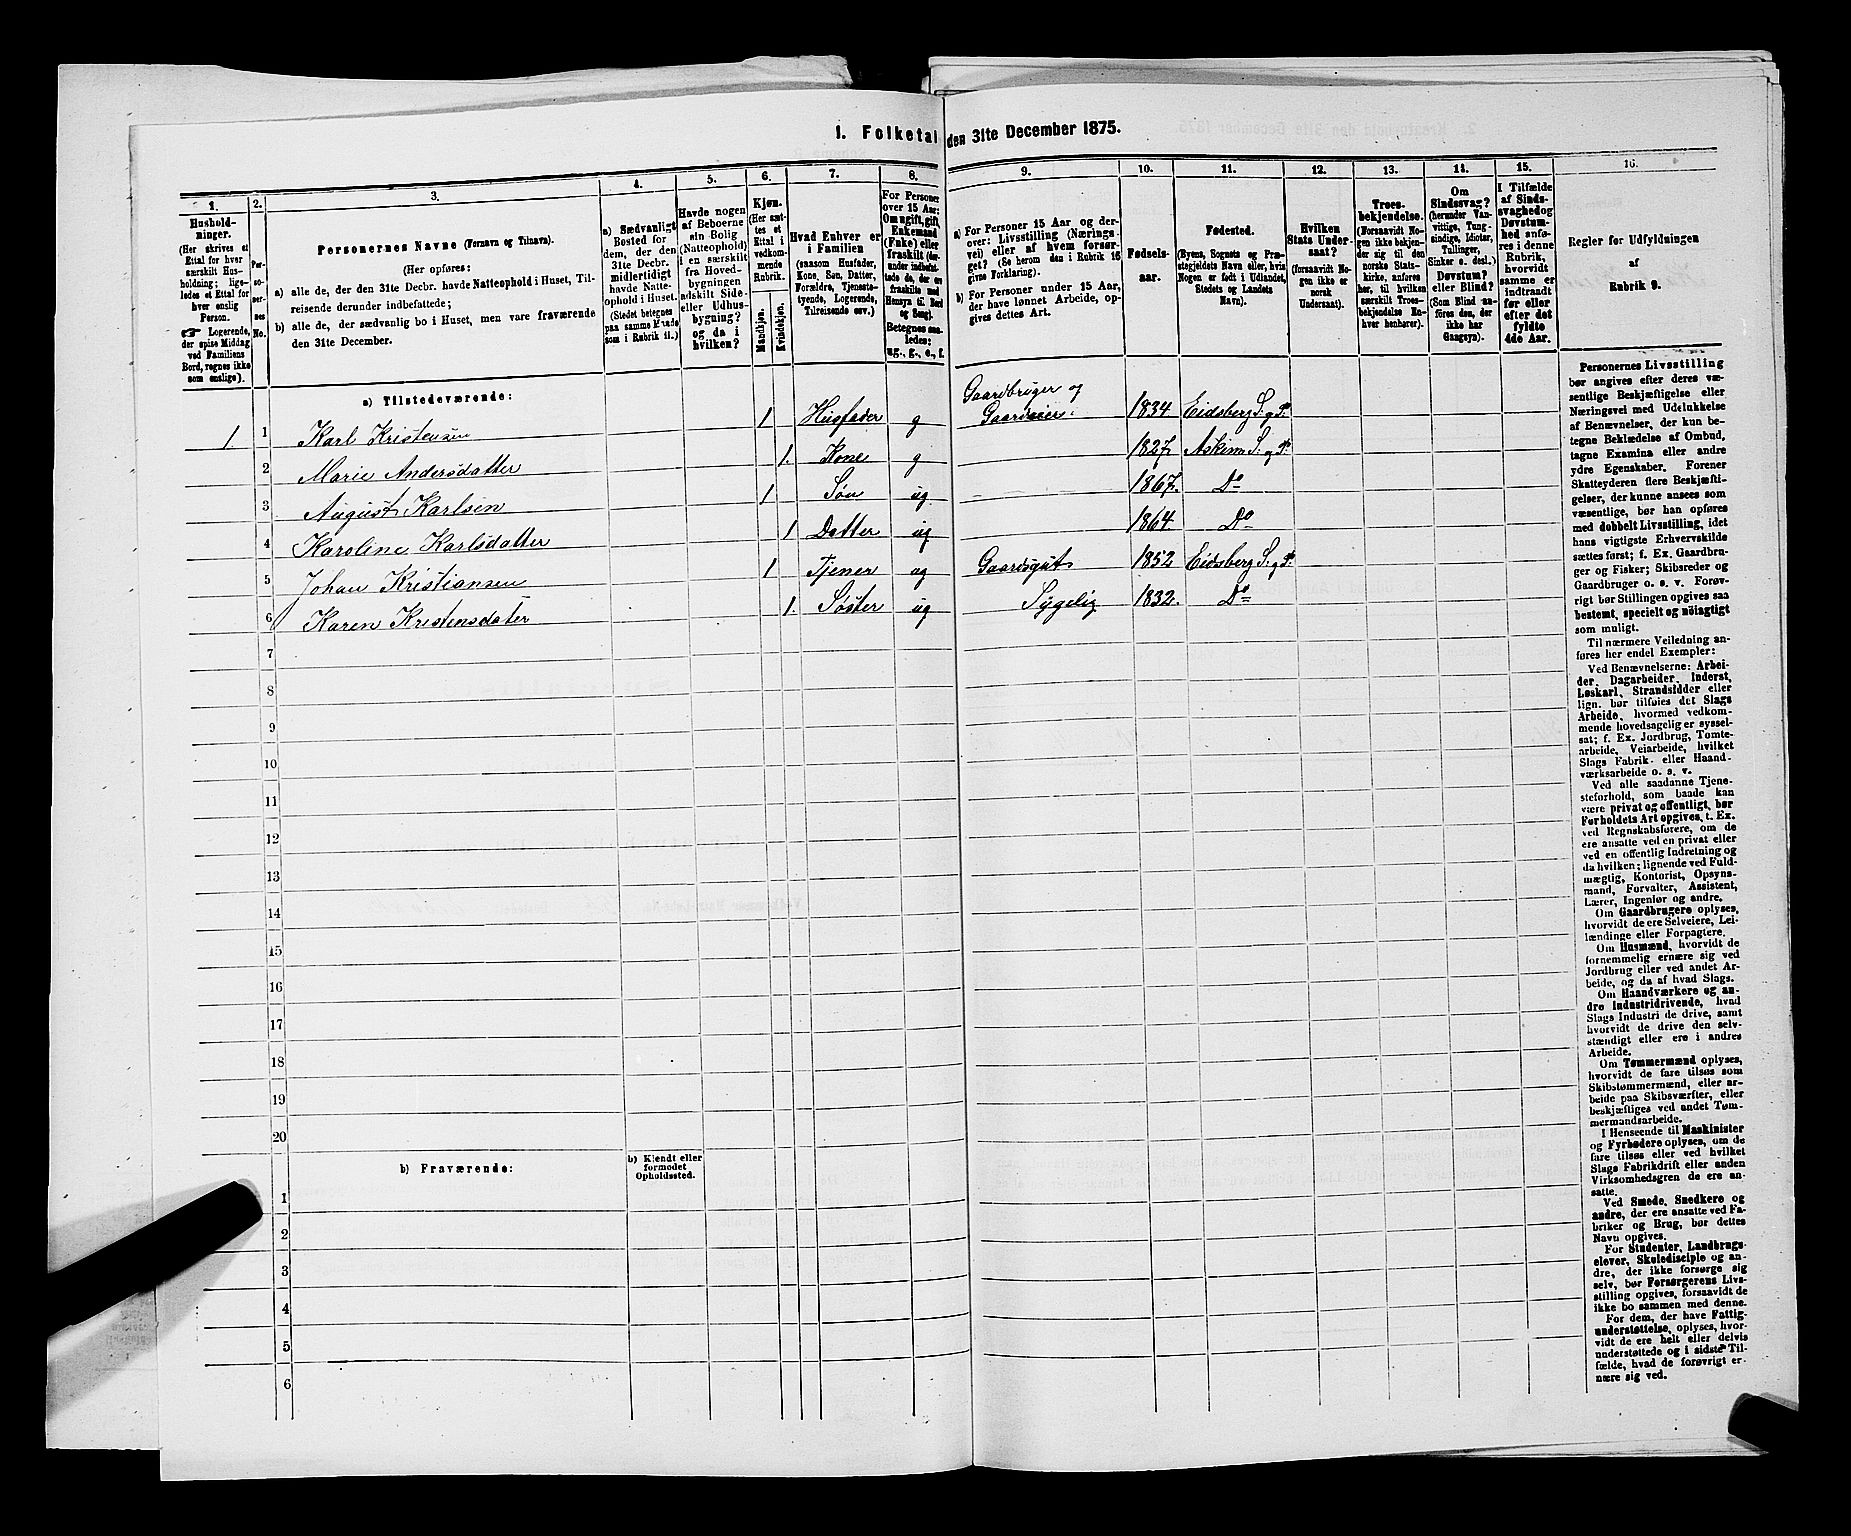 1. Folketal den 31te December 1875.
1. 2. 3. 4. 5. 6. 7. 8. 9. 10. 11. 12. 13. 14. 15. 16.
Hushold-
ninger.
(Her skrives et
Ettal for hver
særskilt Hus-
holdning; lige-
ledes et Ettal for
enslig
Person.
☛ Logerende,
der spise Middag
ved Familiens
Bord, regnes ikke
som enslige).
Per-
so-
ner-
nes
No.
Personernes Navne (Fornavn og Tilnavn).
(Her opføres:
a) alle de, der den 31te Decbr. havde Natteophold i Huset, Til-
reisende derunder indbefattede;
b) alle de, der sædvanlig bo i Huset, men vare fraværende
den 31te December.
a) Sædvanligt
Bosted for
dem, der den
31te Decbr.
midlertidigt
havde Natte-
ophold i Huset.
(Stedet betegnes
paa samme Maade
som i Rubrik 11.)
Havde nogen
af Beboerne
sin Bolig
(Natteophold)
i en særskilt
fra Hoved-
bygningen
adskilt Side-
eller Udhus-
bygning?
og da i
hvilken?
Kjøn.
(Her sæt-
tes et
Ettal i
vedkom-
mende
Rubrik.
Mandkjøn.
Kvindekjøn.
Hvad Enhver er
i Familien
(saasom Husfader,
Kone, Søn, Datter,
Forældre, Tjeneste-
tyende, Logerende,
Tilreisende osv.)
For Personer
over 15 Aar:
Om ugift, gift,
Enkemand
(Enke) eller
fraskilt (der-
under indbefat-
tede de, der ere
fraskilte med
Hensyn til Bord
og Seng).
Betegnes saa-
ledes:
ug., g., e., f.
a) For Personer 15 Aar og der-
over: Livsstilling (Nærings-
vei) eller af hvem forsør-
get? (Se herom den i Rubrik 16
givne Forklaring).
b) For Personer under 15 Aar,
der have lønnet Arbeide, op-
gives dettes Art.
Fødsels-
aar.
Fødested.
(Byens, Sognets og Præ-
stegjeldets Navn eller, hvis
Nogen er født i Udlandet,
Stedets og Landets
Navn).
Hvilken
Stats Under-
saat?
(forsaavidt No-
gen ikke er
norsk
Undersaat).
Troes-
bekjendelse.
(Forsaavidt No-
gen ikke bekjen-
der sig til den
norske Stats-
kirke, anføres
her, til hvilken
særskilt Troes-
bekjendelse En-
hver henhører).
Om
Sindssvag?
(herunder Van-
vittige, Tung-
sindige, Idioter,
Tullinger,
Sinker o. desl.)
Døvstum?
eller Blind?
(Som Blind an-
føres den, der
ikke har
Gangsyn).
I Tilfælde
af Sinds-
svaghed og
Døvstum-
hed anfø-
res i denne
Rubrik,
hvorvidt
samme er
indtraadt
før eller
efter det
fyldte
4de Aar.
Regler for Udfyldningen
af
Rubrik 9.
a) Tilstedeværende:
1 1 Karl Kristensen 1 Husfader g Gaardbruger og Gaardeier 1834 Eidsberg S. og P.
2 Marie Andersdatter 1. Kone g 1827. Askim S. og P.
3 August Karlsen 1 Søn ug 1867. Do
4 Karoline Karlsdatter 1 Datter ug 1864 Do
5 Johan Kristiansen 1 Tjener ug Gaardsgut 1852 Eidsberg S. og P.
6 Karen Kristensdater 1. Søster ug Sygelig 1832. Do
7
8
9
10
11
12
13
14
15
16
17
18
19
20
b) Fraværende:
b) Kjendt eller
formodet
Opholdssted.
1
2
3
4
5
6
Personernes Livsstilling
bør angives efter deres væ-
sentlige Beskjæftigelse eller
Næringsvei med Udelukkelse
af Benævnelser, der kun be-
tegne Beklædelse af Ombud,
tagne Examina eller andre
ydre Egenskaber. Forener
Skatteyderen flere Beskjæfti-
gelser, der kunne ansees som
væsentlige, bør han opføres
med dobbelt Livsstilling, idet
hans vigtigste Erhvervskilde
sættes først; f. Ex. Gaardbru-
ger og Fisker; Skibsreder og
Gaardbruger o. s. v. Forøv-
rigt bør Stillingen opgives saa
bestemt, specielt og nöiagtigt
som muligt.
Til nærmere Veiledning an-
føres her endel Exempler:
Ved Benævnelserne: Arbei-
der, Dagarbeider, Inderst,
Løskarl, Strandsidder eller
lign. bør tilføies det Slags
Arbeide, hvormed vedkom-
mende hovedsagelig er syssel-
sat; f. Ex. Jordbrug, Tomte-
arbeide, Veiarbeide, hvilket
Slags Fabrik- eller Haand-
værksarbeide o. s. v.
Ved alle saadanne Tjene-
steforhold, som baade kan
være privat og offentligt, bør
Forholdets Art opgives, t. Ex.
ved Regnskabsførere, om de
ere ansatte ved en privat eller
ved en offentlig Indretning og
da hvilken; lignende ved Fuld-
mægtig, Kontorist, Opsyns-
mand, Forvalter, Assistent,
Lærer, Ingeniør og andre.
Om Gaardbrugere oplyses,
hvorvidt de ere Selveiere, Lei-
lændinge eller Forpagtere.
Om Husmænd, hvorvidt de
fornemmelig ernære sig ved
Jordbrug eller ved andet Ar-
beide, og da af hvad Slags.
Om Haandværkere og an-
dre Industridrivende, hvad
Slags Industri de drive, samt
hvorvidt de drive den selv-
stændigt eller ere i andres
Arbeide.
Om Tømmermænd oplyses,
hvorvidt de fare tilsøs som
Skibstømmermænd, eller ar-
beide paa Skibsværfter, eller
beskjæftiges ved andet Tøm-
mermandsarbeide.
I Henseende til Maskinister
og Fyrbødere oplyses, om de
fare tilsøs eller ved hvilket
Slags Fabrikdrift eller anden
Virksomhedsgren de ere an-
satte.
Ved Smede, Snedkere og
andre, der ere ansatte ved Fa-
briker og Brug, bør dettes
Navn opgives.
For Studenter, Landbrugs-
elever, Skoledisciple og an-
dre, der ikke forsørge sig
selv, bør Forsørgerens Livs-
stilling opgives, forsaavidt de
ikke bo sammen med denne.
For dem, der have Fattig-
understøttelse, oplyses, hvor-
vidt de ere helt eller delvis
understøttede og i sidste Til-
fælde, hvad de forøvrigt er-
nære sig ved.